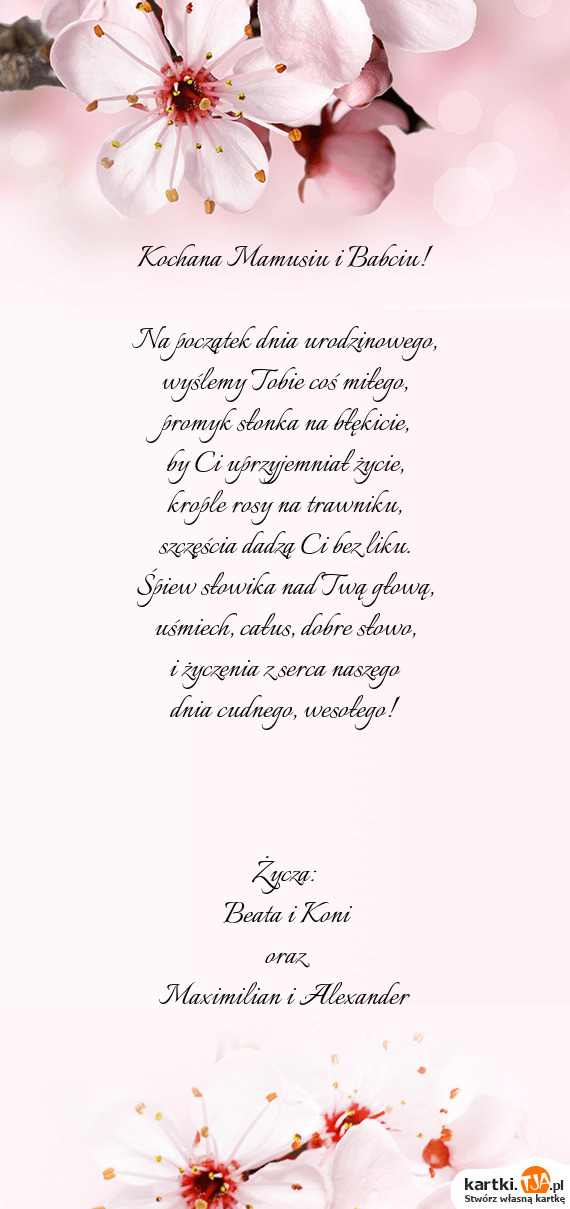 Kochana Mamusiu i Babciu!
Na początek dnia urodzinowego,
wyślemy Tobie coś miłego,
promyk słonka na błękicie,
by Ci uprzyjemniał życie,
krople rosy na trawniku,
szczęścia dadzą Ci bez liku.
Śpiew słowika nad Twą głową,
uśmiech, całus, dobre słowo,
i życzenia z serca naszego
dnia cudnego, wesołego!
Życzą:
Beata i Koni
oraz
Maximilian i Alexander
kartki.TJA.pl
Stwórz własną kartkę